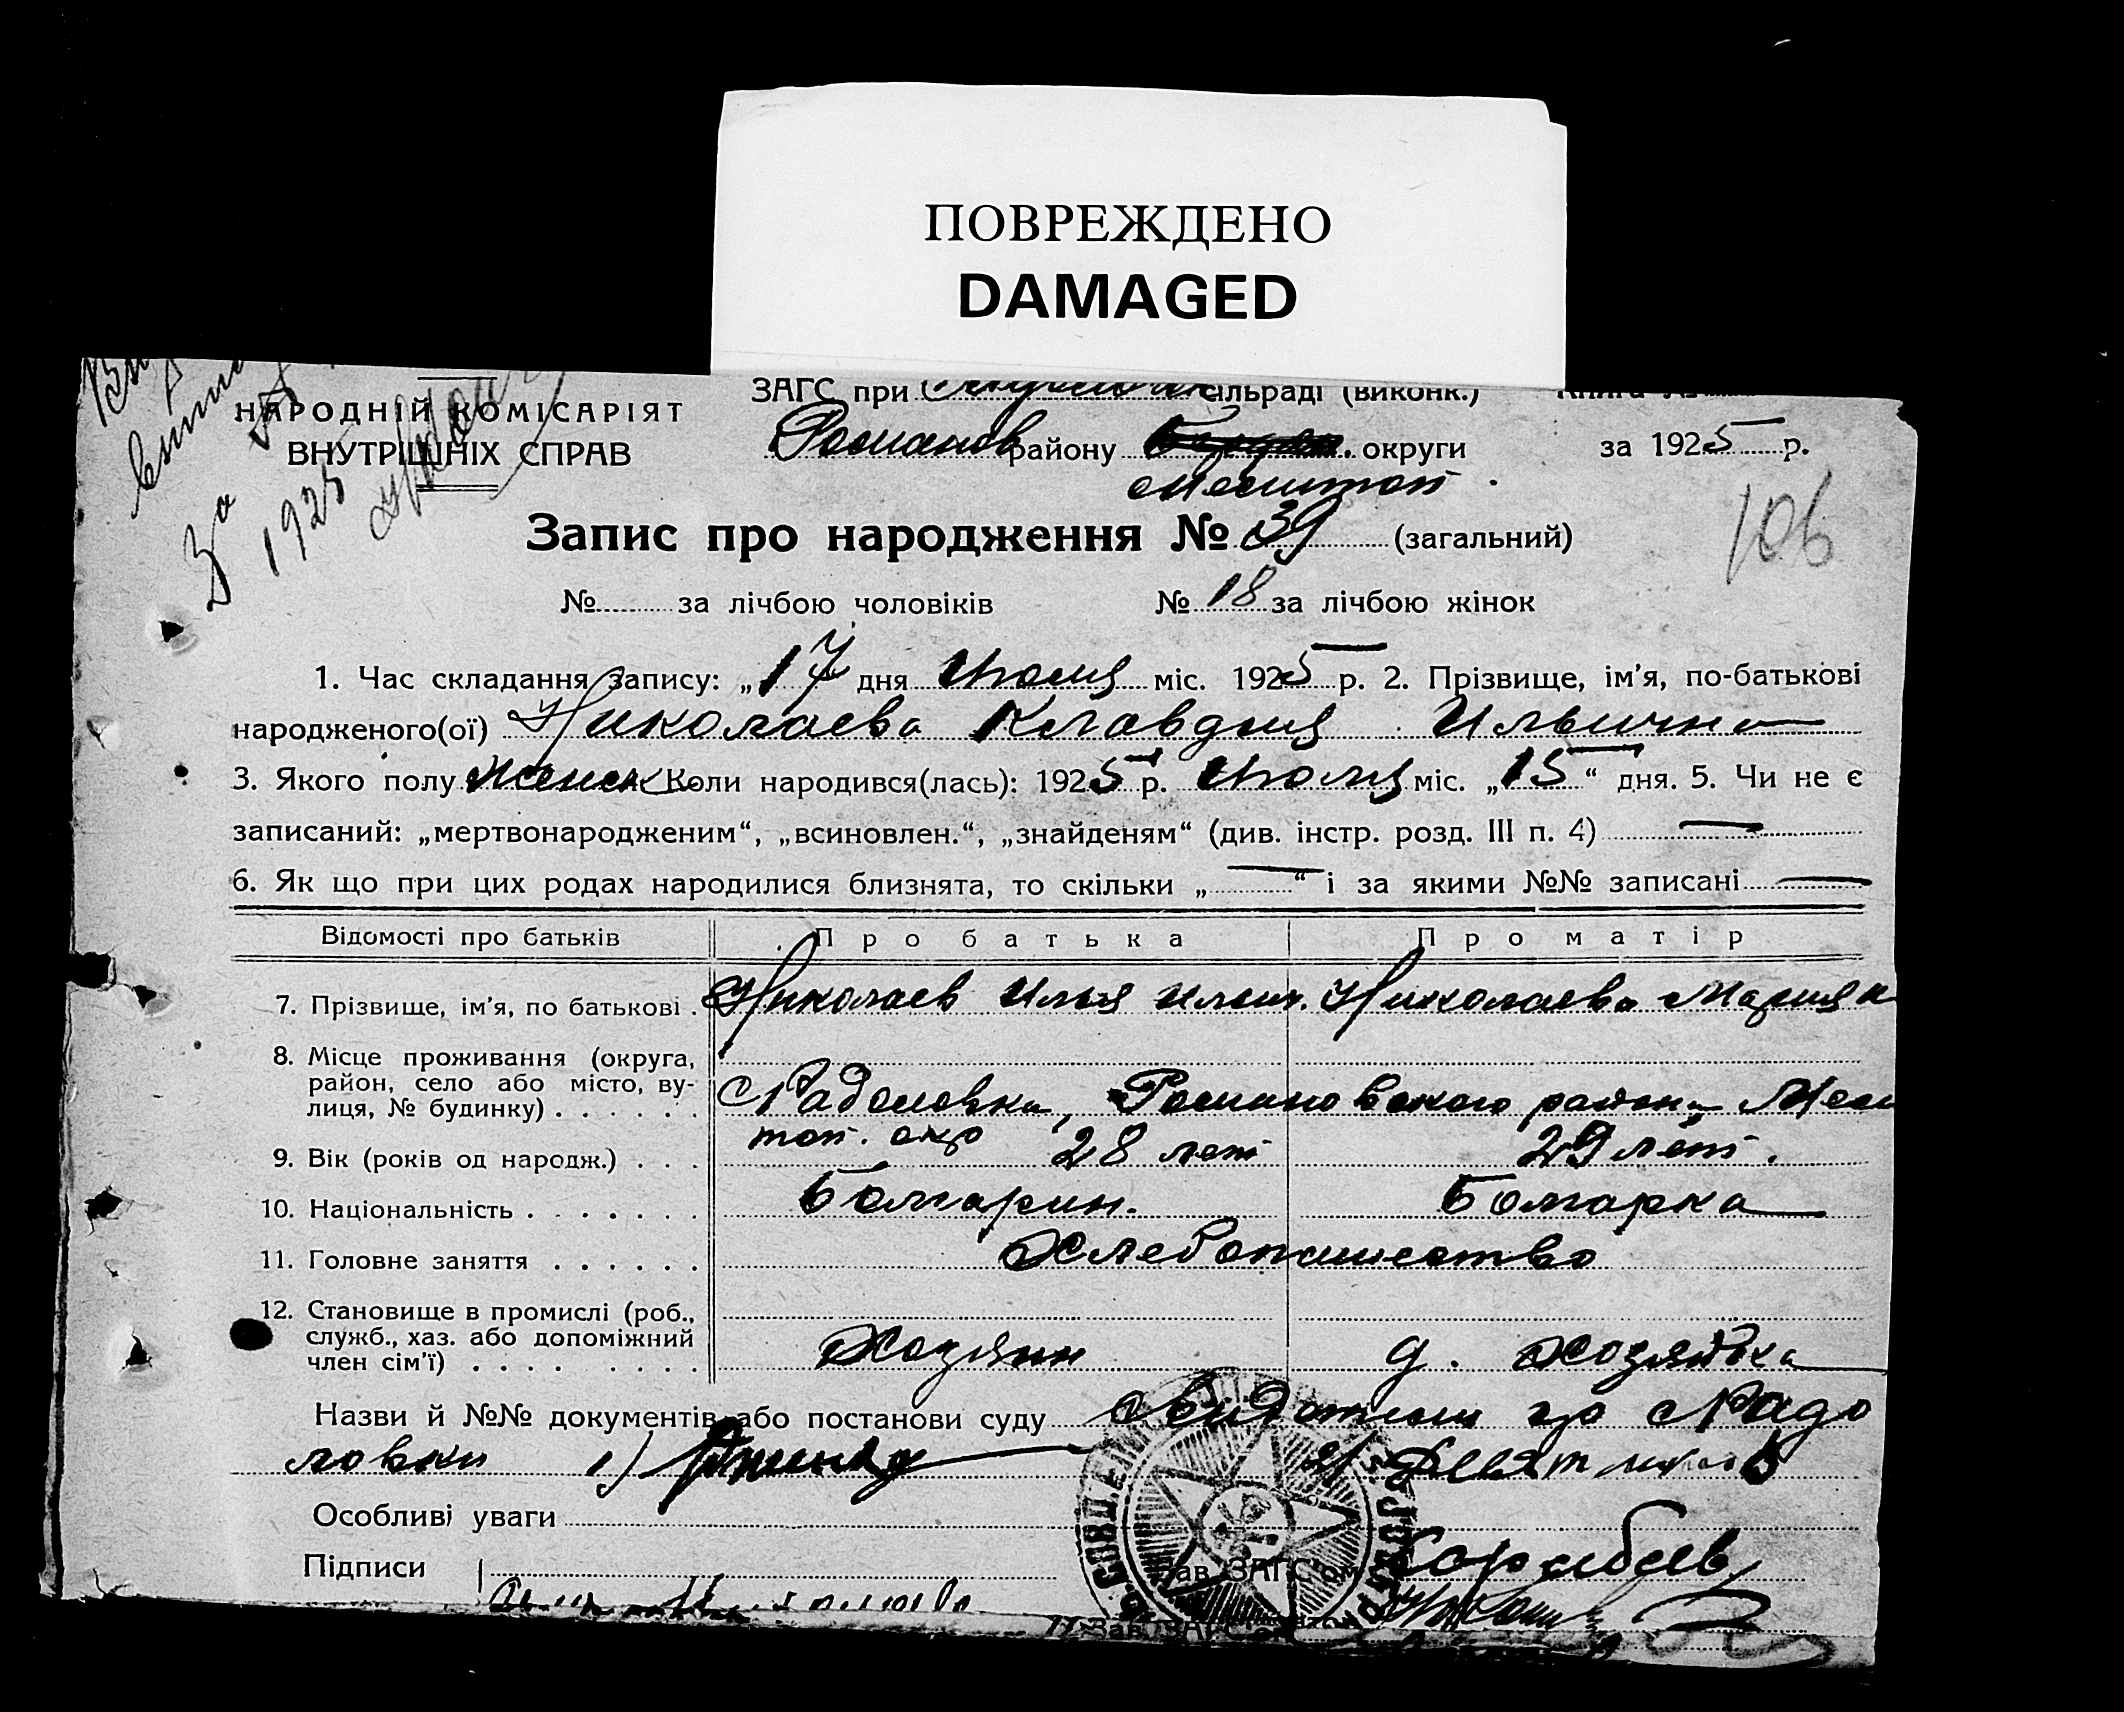 ПОВРЕЖДЕНО
DAMAGED
НАРОДНІЙ КОМІСАРІЯТ
ВНУТРІШНІХ СПРАВ
За
1925
ЗАГС при сільраді (виконк.)
Романов району округи
Мелитоп.
за 1925 р.
Запис про народження № 39 (загальний)
106
№ за лічбою чоловіків № 18 за лічбою жінок
1. Час складання запису: „17 дня Июля міс. 1925 р. 2. Прізвище, ім'я, по-батькові
народженого(ої) Николаева Клавдия Ильична
3. Якого полу Женск Коли народився(лась): 1925 р. Июля міс. „15“ дня. 5. Чи не є
записаний: „мертвонародженим“, „всиновлен.“, „знайденям“ (див. інстр. розд. III п. 4) —
6. Як що при цих родах народилися близнята, то скільки „—“ і за якими №№ записані —
Відомості про батьків Про батька Про матір
7. Прізвище, ім'я, по батькові . Николаев Илья Ильич. Николаева Мария
8. Місце проживання (округа,
район, село або місто, ву-
лиця, № будинку) . . . . . . с Радоловка, Романовского района Мели
топ. окр
9. Вік (років од народж.) . . . 28 лет 29 лет.
10. Національність . . . . . . . Болгарин. Болгарка
11. Головне заняття . . . . . . Хлебопашество
12. Становище в промислі (роб.,
служб., хаз. або допоміжний
член сім'ї) . . . . . . . . Хозяин д. хозяйка
Назви й №№ документів або постанови суду гр с Радо
ловки 1) 2)
Особливі уваги
Підписи Зав. ЗАГС'ом
Зав. ЗАГС